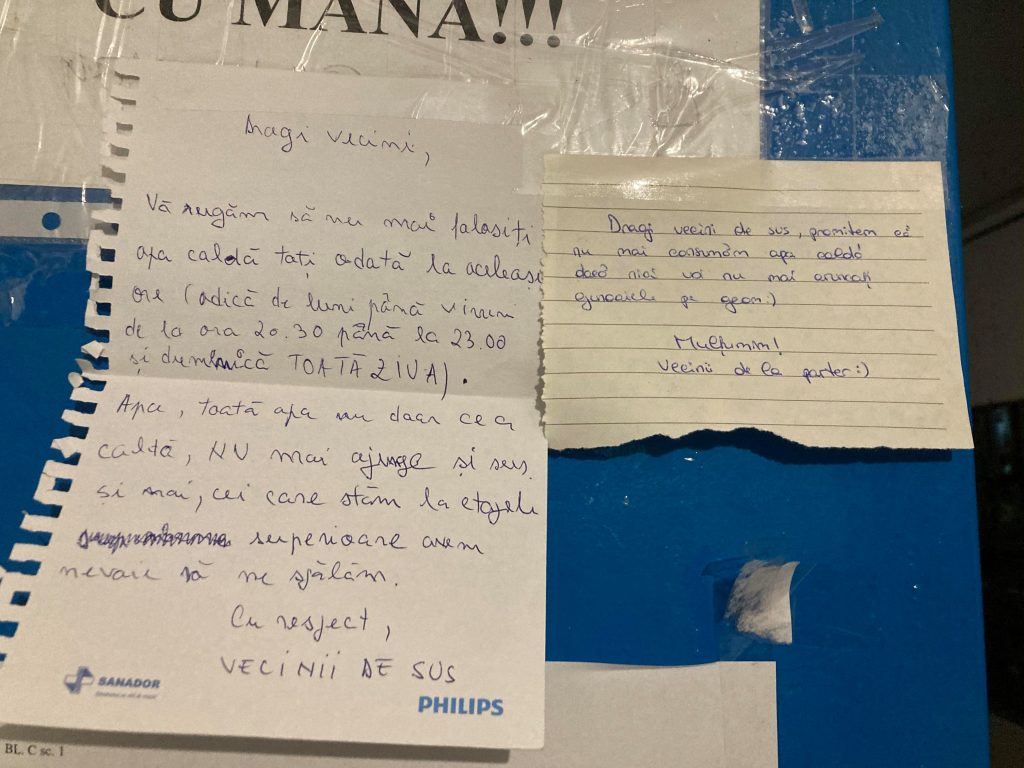 CU MÂNA!!!
Dragi vecini,
Vă rugăm să nu mai folosiți
apa caldă toți odată la aceleași
ore (adică de luni până vineri
de la ora 20.30 până la 23.00
și duminică TOATĂ ZIUA).
Apa, toată apa nu doar cea
caldă, NU mai ajunge și sus
și noi, cei care stăm la etajele
superioare avem
nevoie să ne spălăm.
Cu respect,
VECINII DE SUS
SANADOR
PHILIPS
BL. C sc. 1
Dragi vecini de sus, promitem că
nu mai consumăm apa caldă
dacă nici voi nu mai aruncați
gunoaiele pe geam:)
Mulțumim!
Vecinii de la parter:)